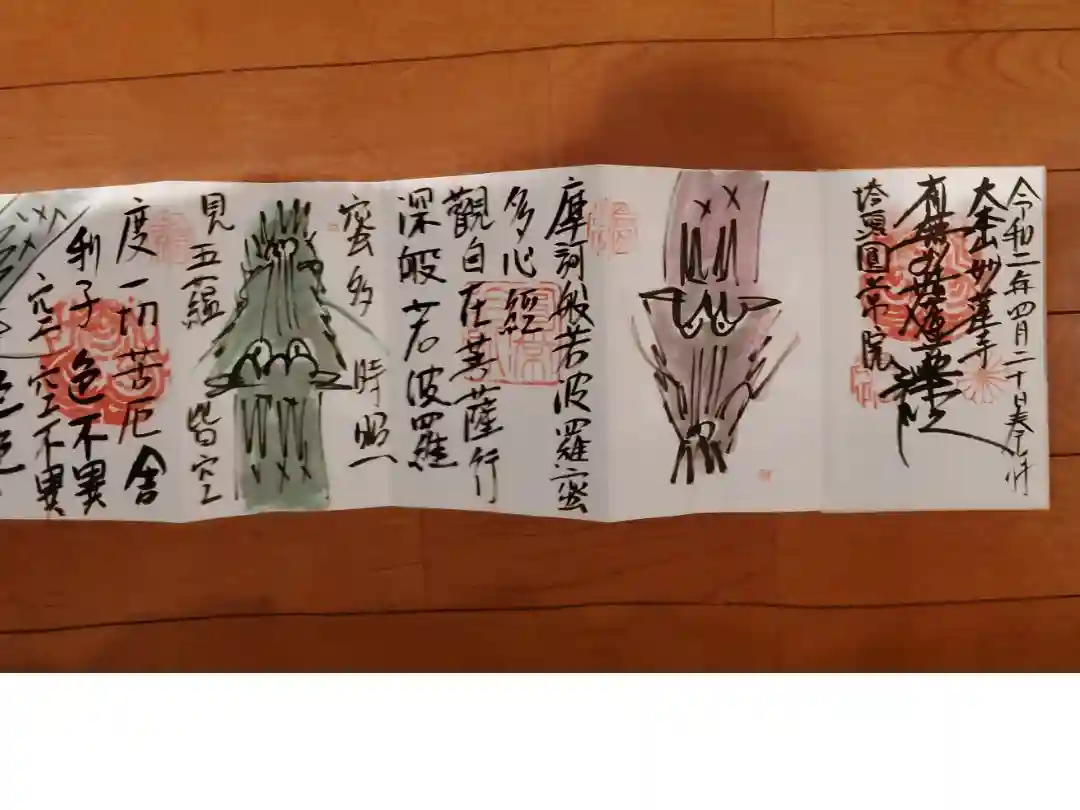 令和二年四月二十日
大本山妙蓮寺
南無妙法蓮華経
塔頭圓常院
摩訶般若波羅蜜
多心經
觀自在菩薩行
深般若波羅
蜜多 時照
見五蘊 皆空
度一切苦厄舎
利子 色不異
空 空不異
色色